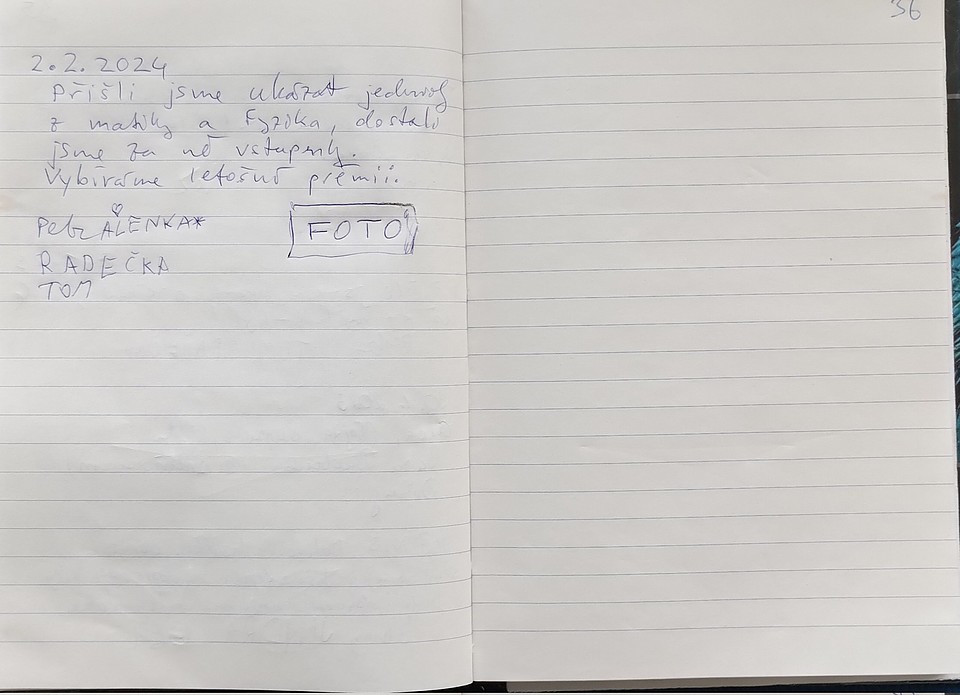 36
2.2.2024
Přišli jsme ukázat jedničky
z matiky a Fyzika, dostali
jsme za ně vstupenky.
Vybíráme letošní prémii.
Petr ALENKA*
FOTO
RADEČKA
TOM